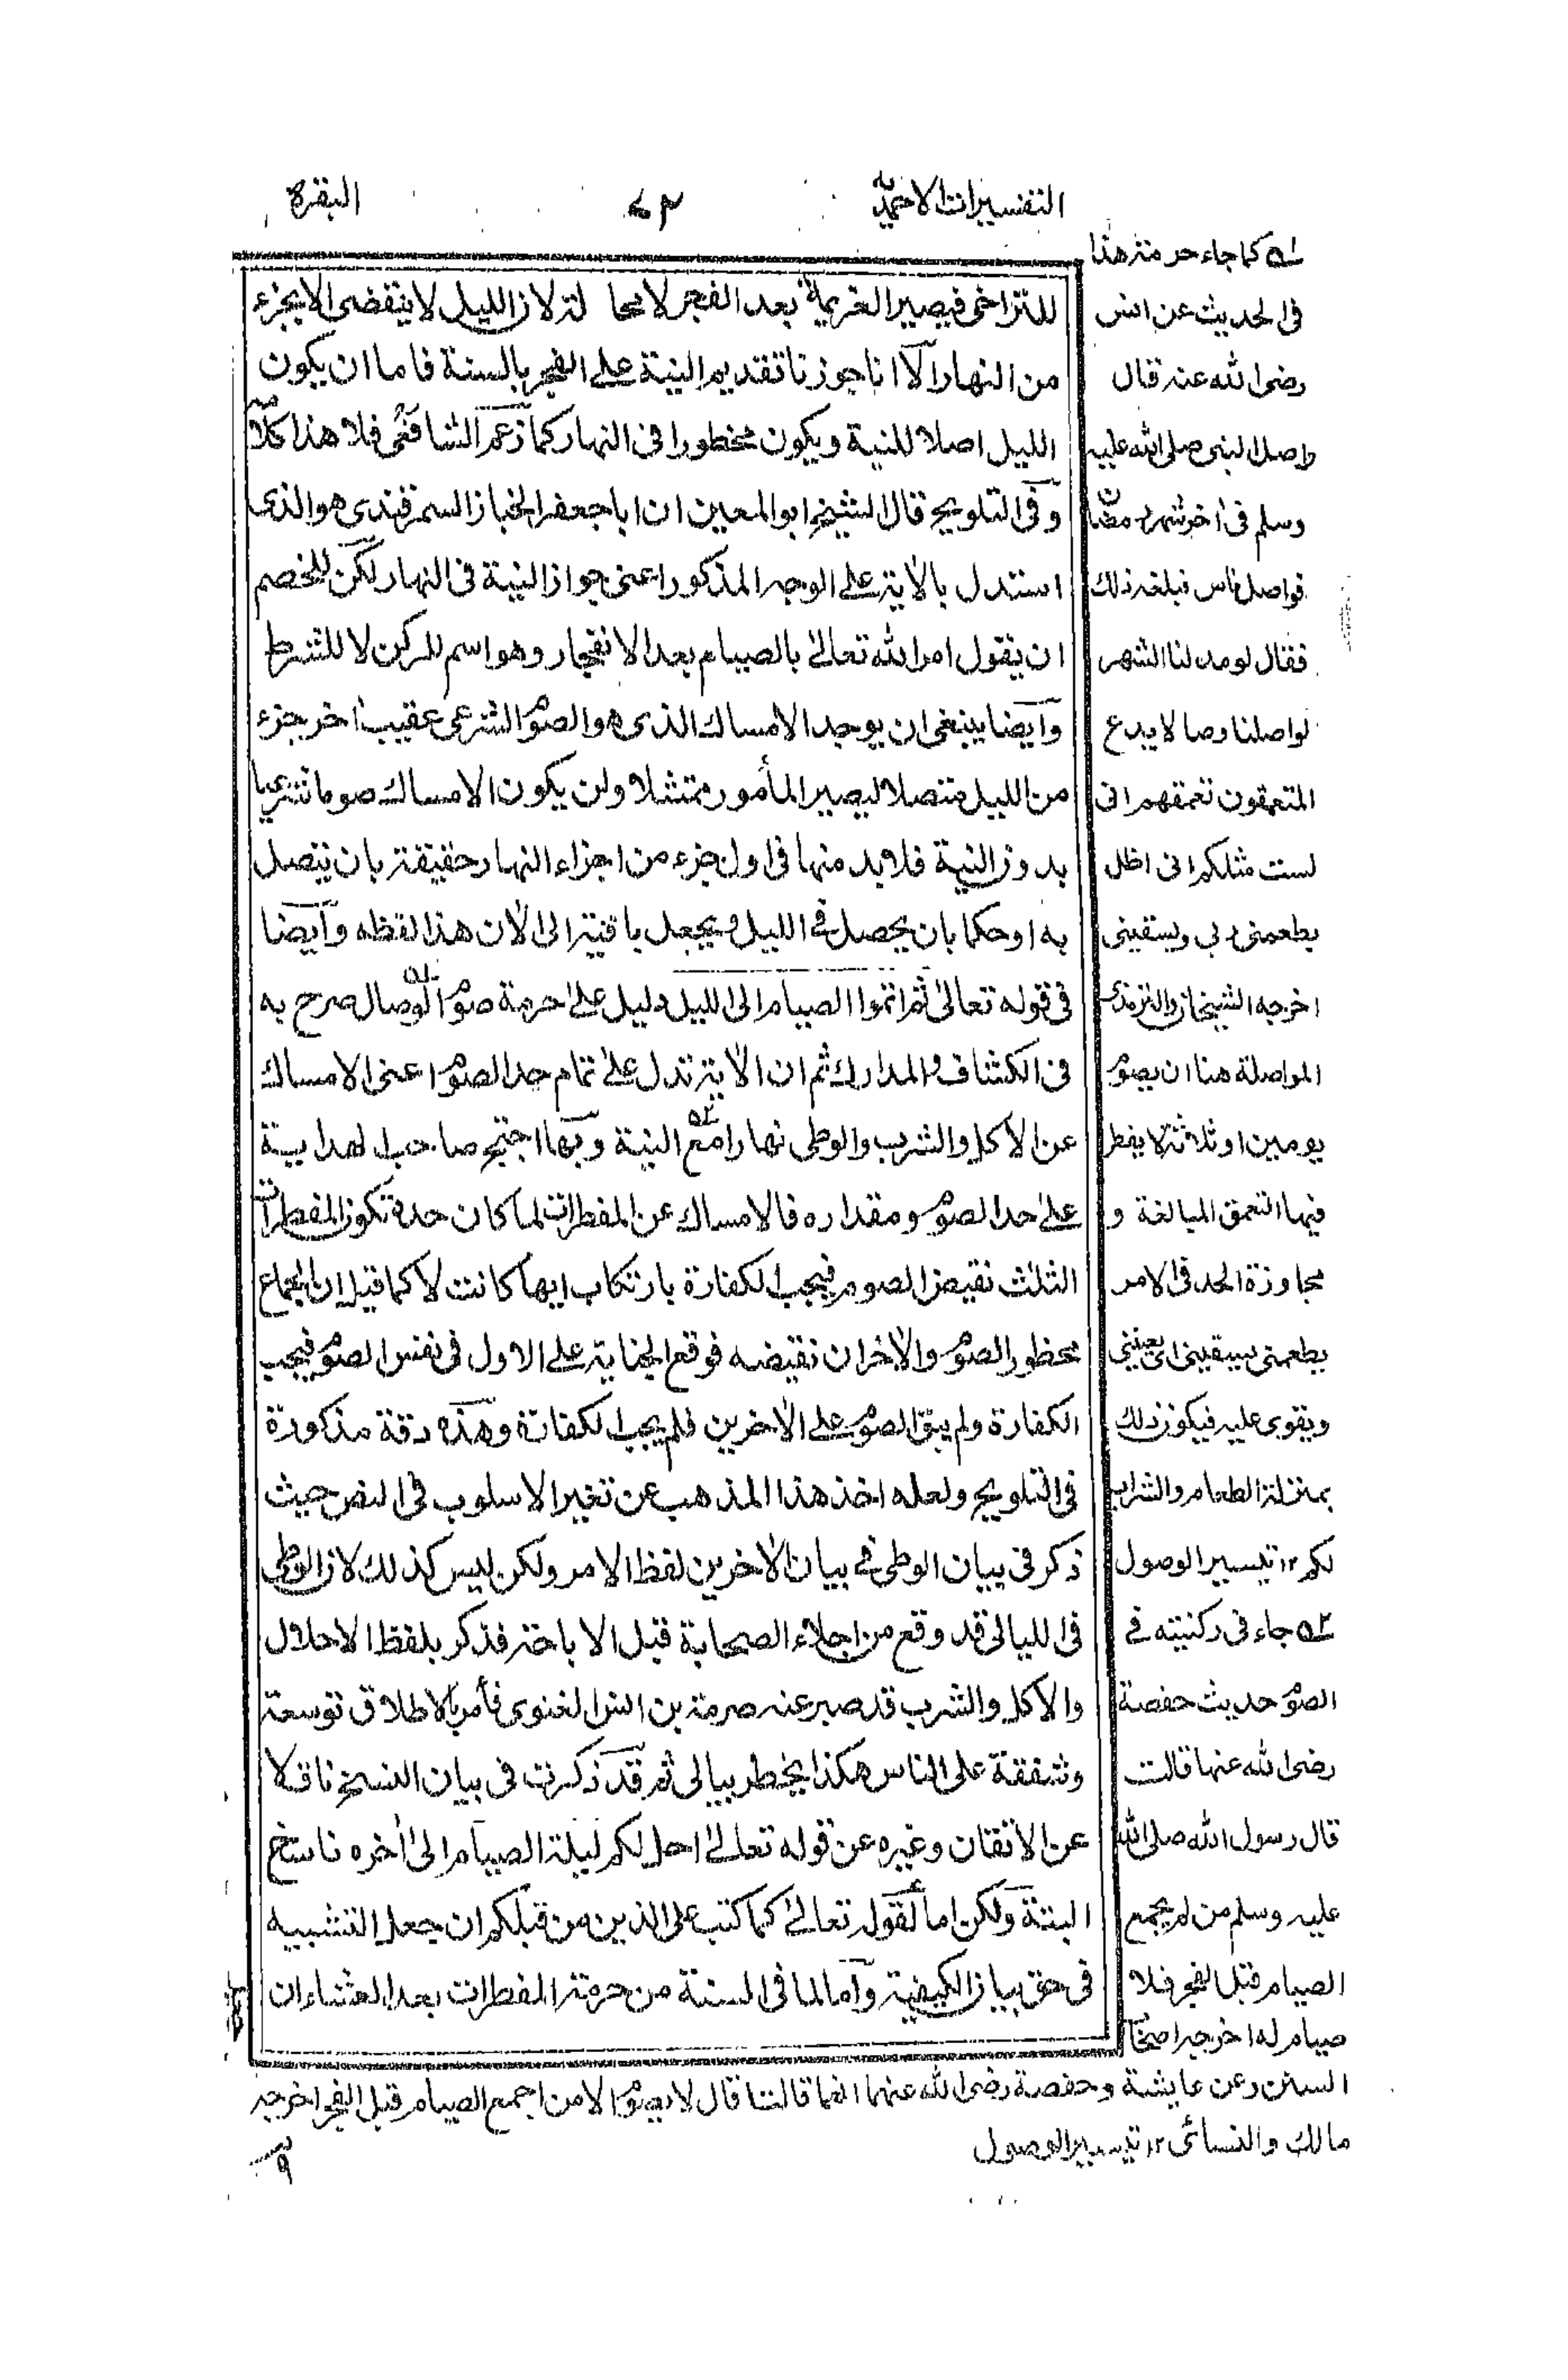 التفسيرات الاحمدية
٧٢
البقرة
للتراخى فيصير العزيمة بعد الفجر لا محالة لان الليل لا ينقضى الا بجزء
من النهار الا انا جوزنا تقديم النية على الفجر بالسنة فاما ان يكون
الليل اصلا للنية ويكون محظورا فى النهار كما زعم الشافعى فلا هذا كلامه
وفى التلويح قال الشيخ ابو المعين ان ابا جعفر الخباز السمرقندى هو الذى
استدل بالاية على الوجه المذكور اعنى جواز النية فى النهار لكن للخصم
ان يقول امر الله تعالى بالصيام بعد الانفجار وهو اسم للركن لا للشرط
وايضا ينبغى ان يوجد الامساك الذى هو الصوم الشرعى عقيب اخر جزء
من الليل متصلا ليصير المأمور ممتثلا ولن يكون الامساك صوما شرعيا
بدون النية فلا بد منها فى اول جزء من اجزاء النهار حقيقة بان يتصل
به او حكما بان يحصل فى الليل ويجعل باقية الى الان هذا لفظه وايضا
فى قوله تعالى ثم اتموا الصيام الى الليل دليل على حرمة صوم الوصال صرح به
فى الكشاف والمدارك ثم ان الاية تدل على تمام حد الصوم اعنى الامساك
عن الاكل والشرب والوطى نهارا مع النية وبها احتج صاحب الهداية
على حد الصوم ومقداره فالامساك عن المفطرات لما كان حده تكون المفطرات
الثلث نقيض الصوم فيجب الكفارة بارتكاب ايها كانت لا كما قيل ان الجماع
محظور الصوم والاخران نقيضه فوقع الجناية على الاول فى نفس الصوم فيجب
الكفارة ولم يبق الصوم على الاخرين فلم يجب الكفارة وهذه دقة مذكورة
فى التلويح ولعله اخذ هذا المذهب عن تغير الاسلوب فى النص حيث
ذكر فى بيان الوطى فى بيان الاخرين لفظ الامر ولكن ليس كذلك لان الوطى
فى الليالى قد وقع من اجلاء الصحابة قبل الاباحة فذكر بلفظ الاحلال
والاكل والشرب قد صبر عنه صرمة بن انس الغنوى فأمر بالاطلاق توسعة
وشفقة على الناس هكذا يخطر ببالى ثم قد ذكرت فى بيان النسخ ناقلا
عن الاتقان وغيره عن قوله تعالى احل لكم ليلة الصيام الى اخره ناسخ
البتة ولكن اما لقوله تعالى كما كتب على الذين من قبلكم ان جعل التشبيه
فى حق بيان الكيفية واما لما فى السنة من حرمة المفطرات بعد العشاء ان
له كما جاء حرمته هذا
فى الحديث عن انس
رضى الله عنه قال
واصل النبى صلى الله عليه
وسلم فى اخر شهر رمضان
فواصل ناس فبلغه ذلك
فقال لو مد لنا الشهر
لواصلنا وصالا يدع
المتعمقون تعمقهم انى
لست مثلكم انى اظل
يطعمنى ربى ويسقينى
اخرجه الشيخان والترمذى
المواصلة هنا ان يصوم
يومين او ثلاثة لا يفطر
فيها التعمق المبالغة و
مجاوزة الحد فى الامر
يطعمنى يسقينى اى يعيننى
ويقوى عليه فيكون ذلك
بمنزلة الطعام والشراب
لكم ١٢ تيسير الوصول
٢ه جاء فى ركنيته فى
الصوم حديث حفصة
رضى الله عنها قالت
قال رسول الله صلى الله
عليه وسلم من لم يجمع
الصيام قبل الفجر فلا
صيام له اخرجه اصحاب
السنن وعن عايشة وحفصة رضى الله عنهما انهما قالتا قال لا يصوم الا من اجمع الصيام قبل الفجر اخرجه
مالك والنسائى ١٢ تيسير الوصول